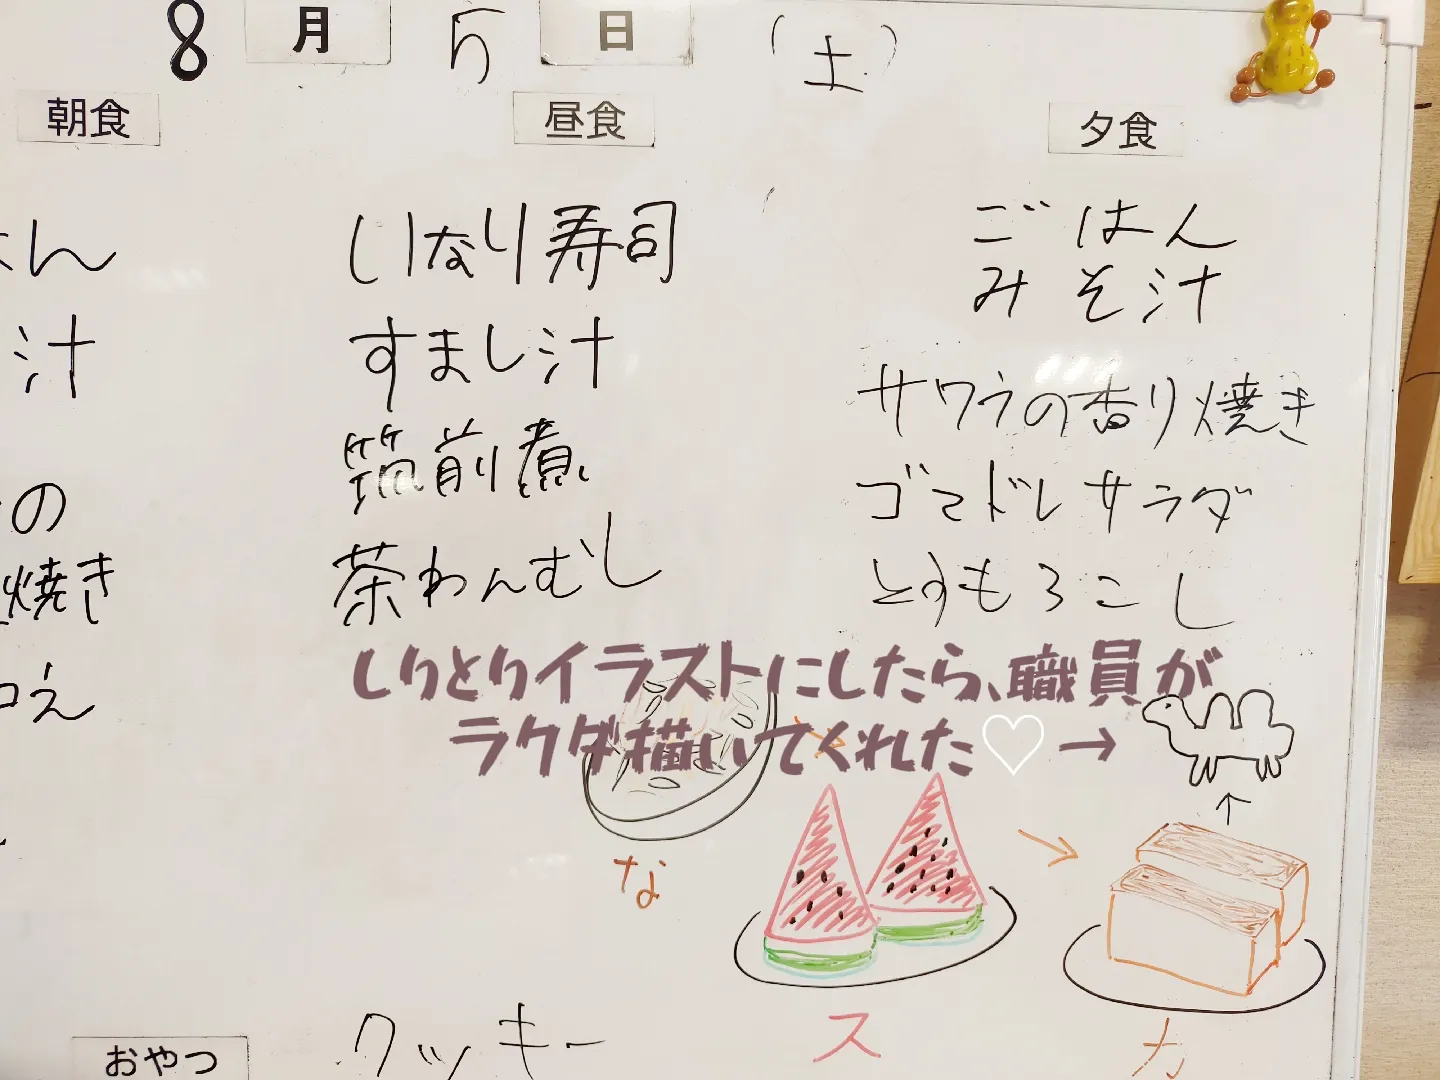 8月5日(土)
朝食
ん
汁
の
焼き
え
昼食
いなり寿司
すまし汁
筑前煮
茶わんむし
夕食
ごはん
みそ汁
サワラの香り焼き
ゴマドレサラダ
とうもろこし
しりとりイラストにしたら、職員が
ラクダ描いてくれた♡→
な
ス
カ
おやつ
クッキー